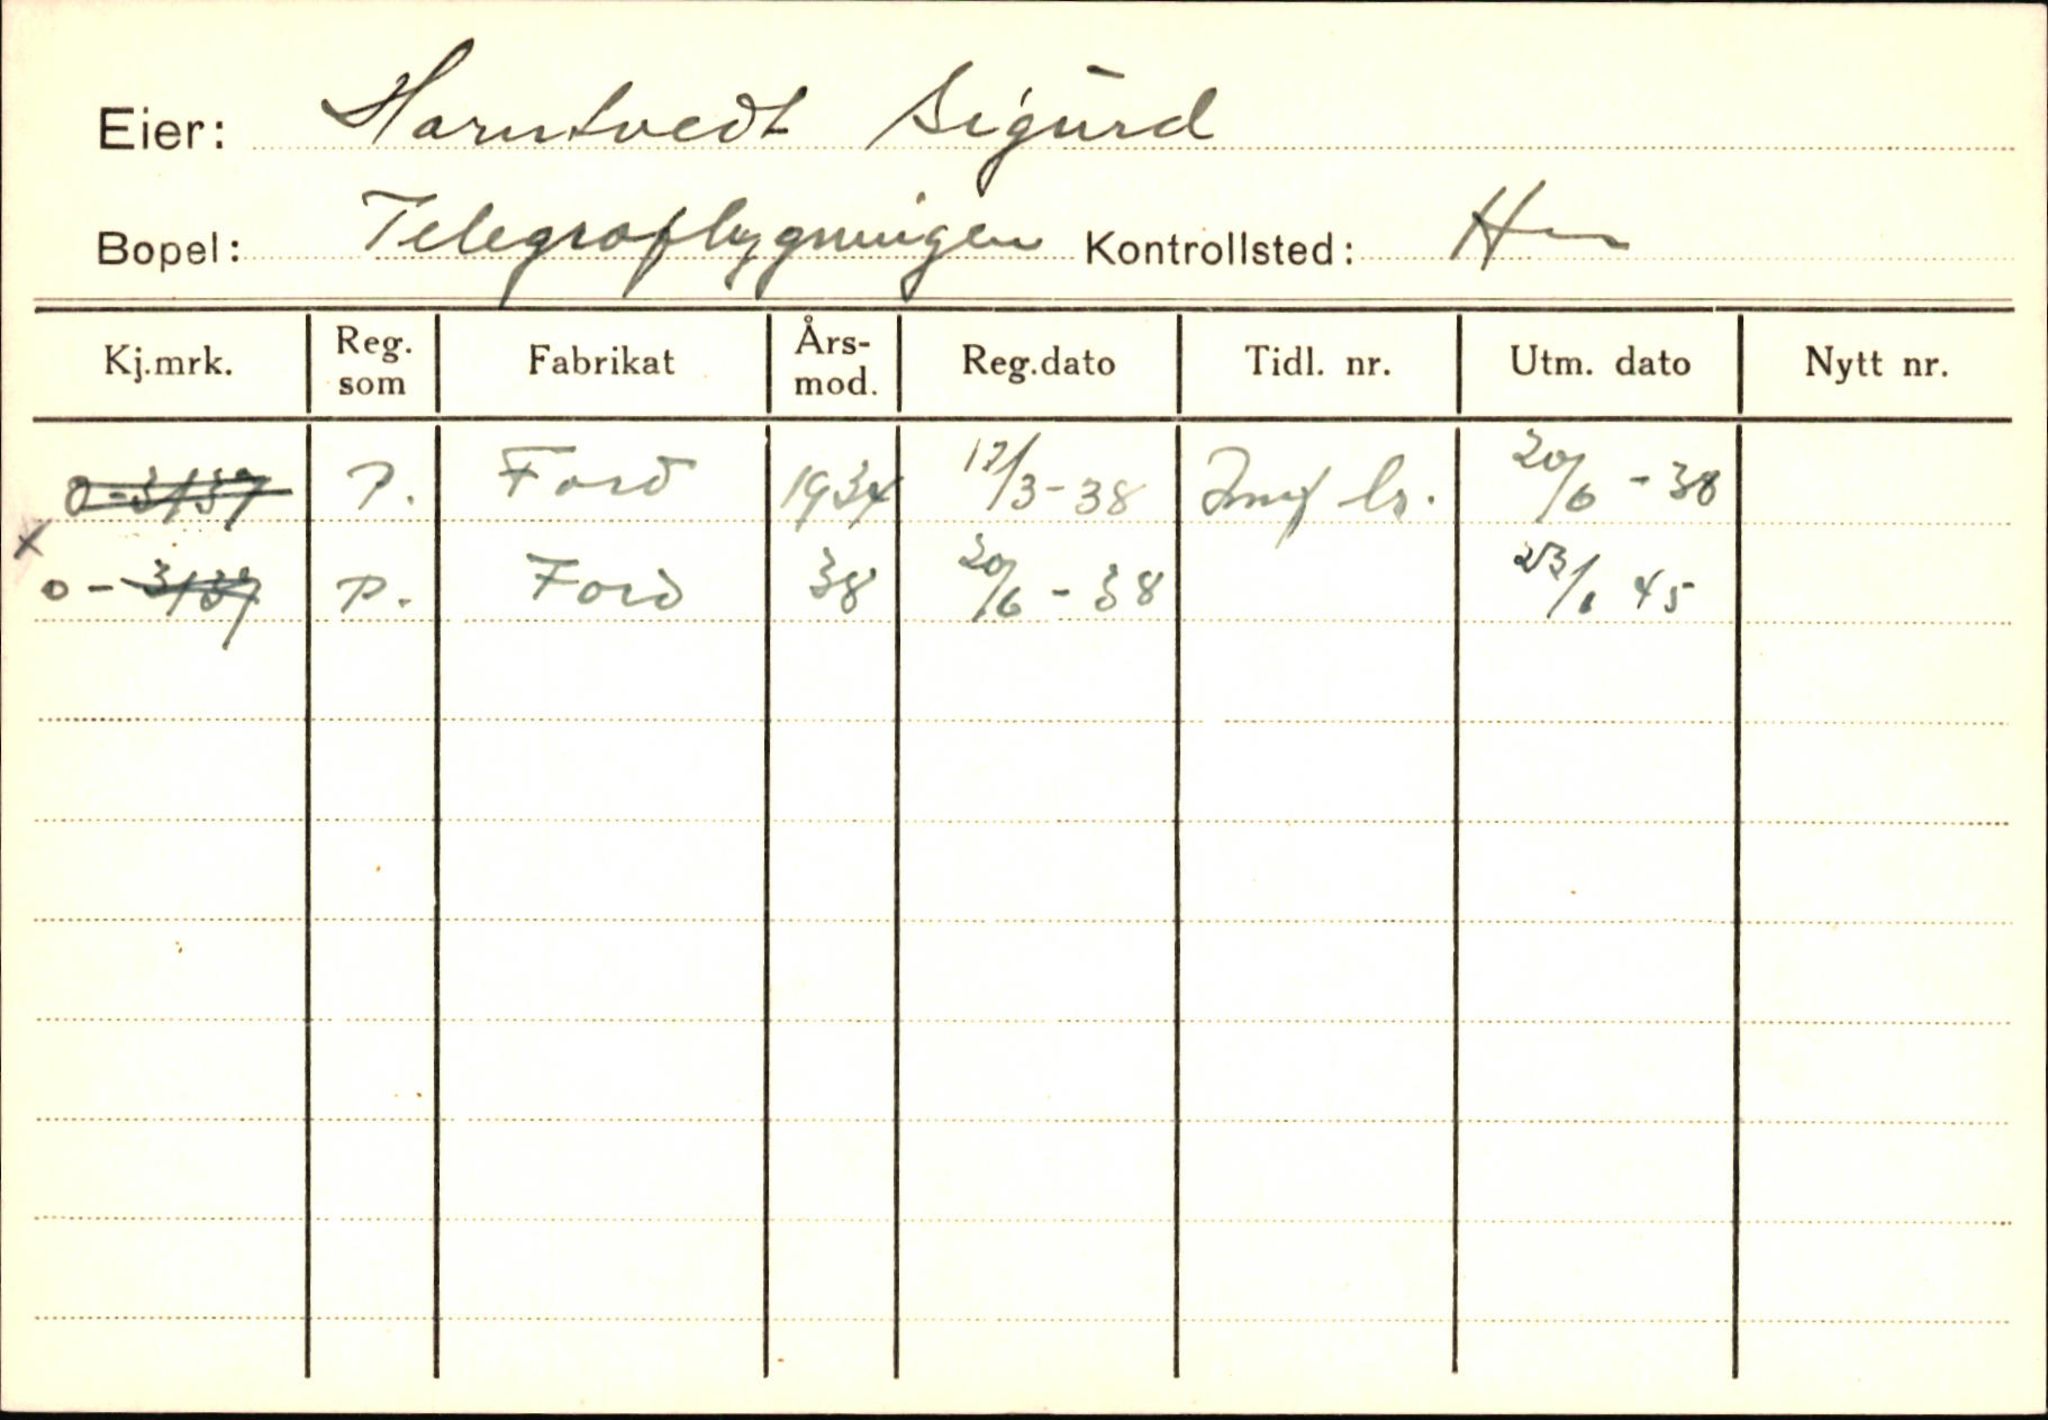 Eier: Harntvedt Sigurd
Bopel: Telegrafbygningen Kontrollsted: H
Kj.mrk. Reg. som Fabrikat Års-mod. Reg.dato Tidl. nr. Utm. dato Nytt nr.
O-3137 P. Ford 1934 17/3-38 20/6-38
x
O-3137 P. Ford 38 20/6-38 23/1 45